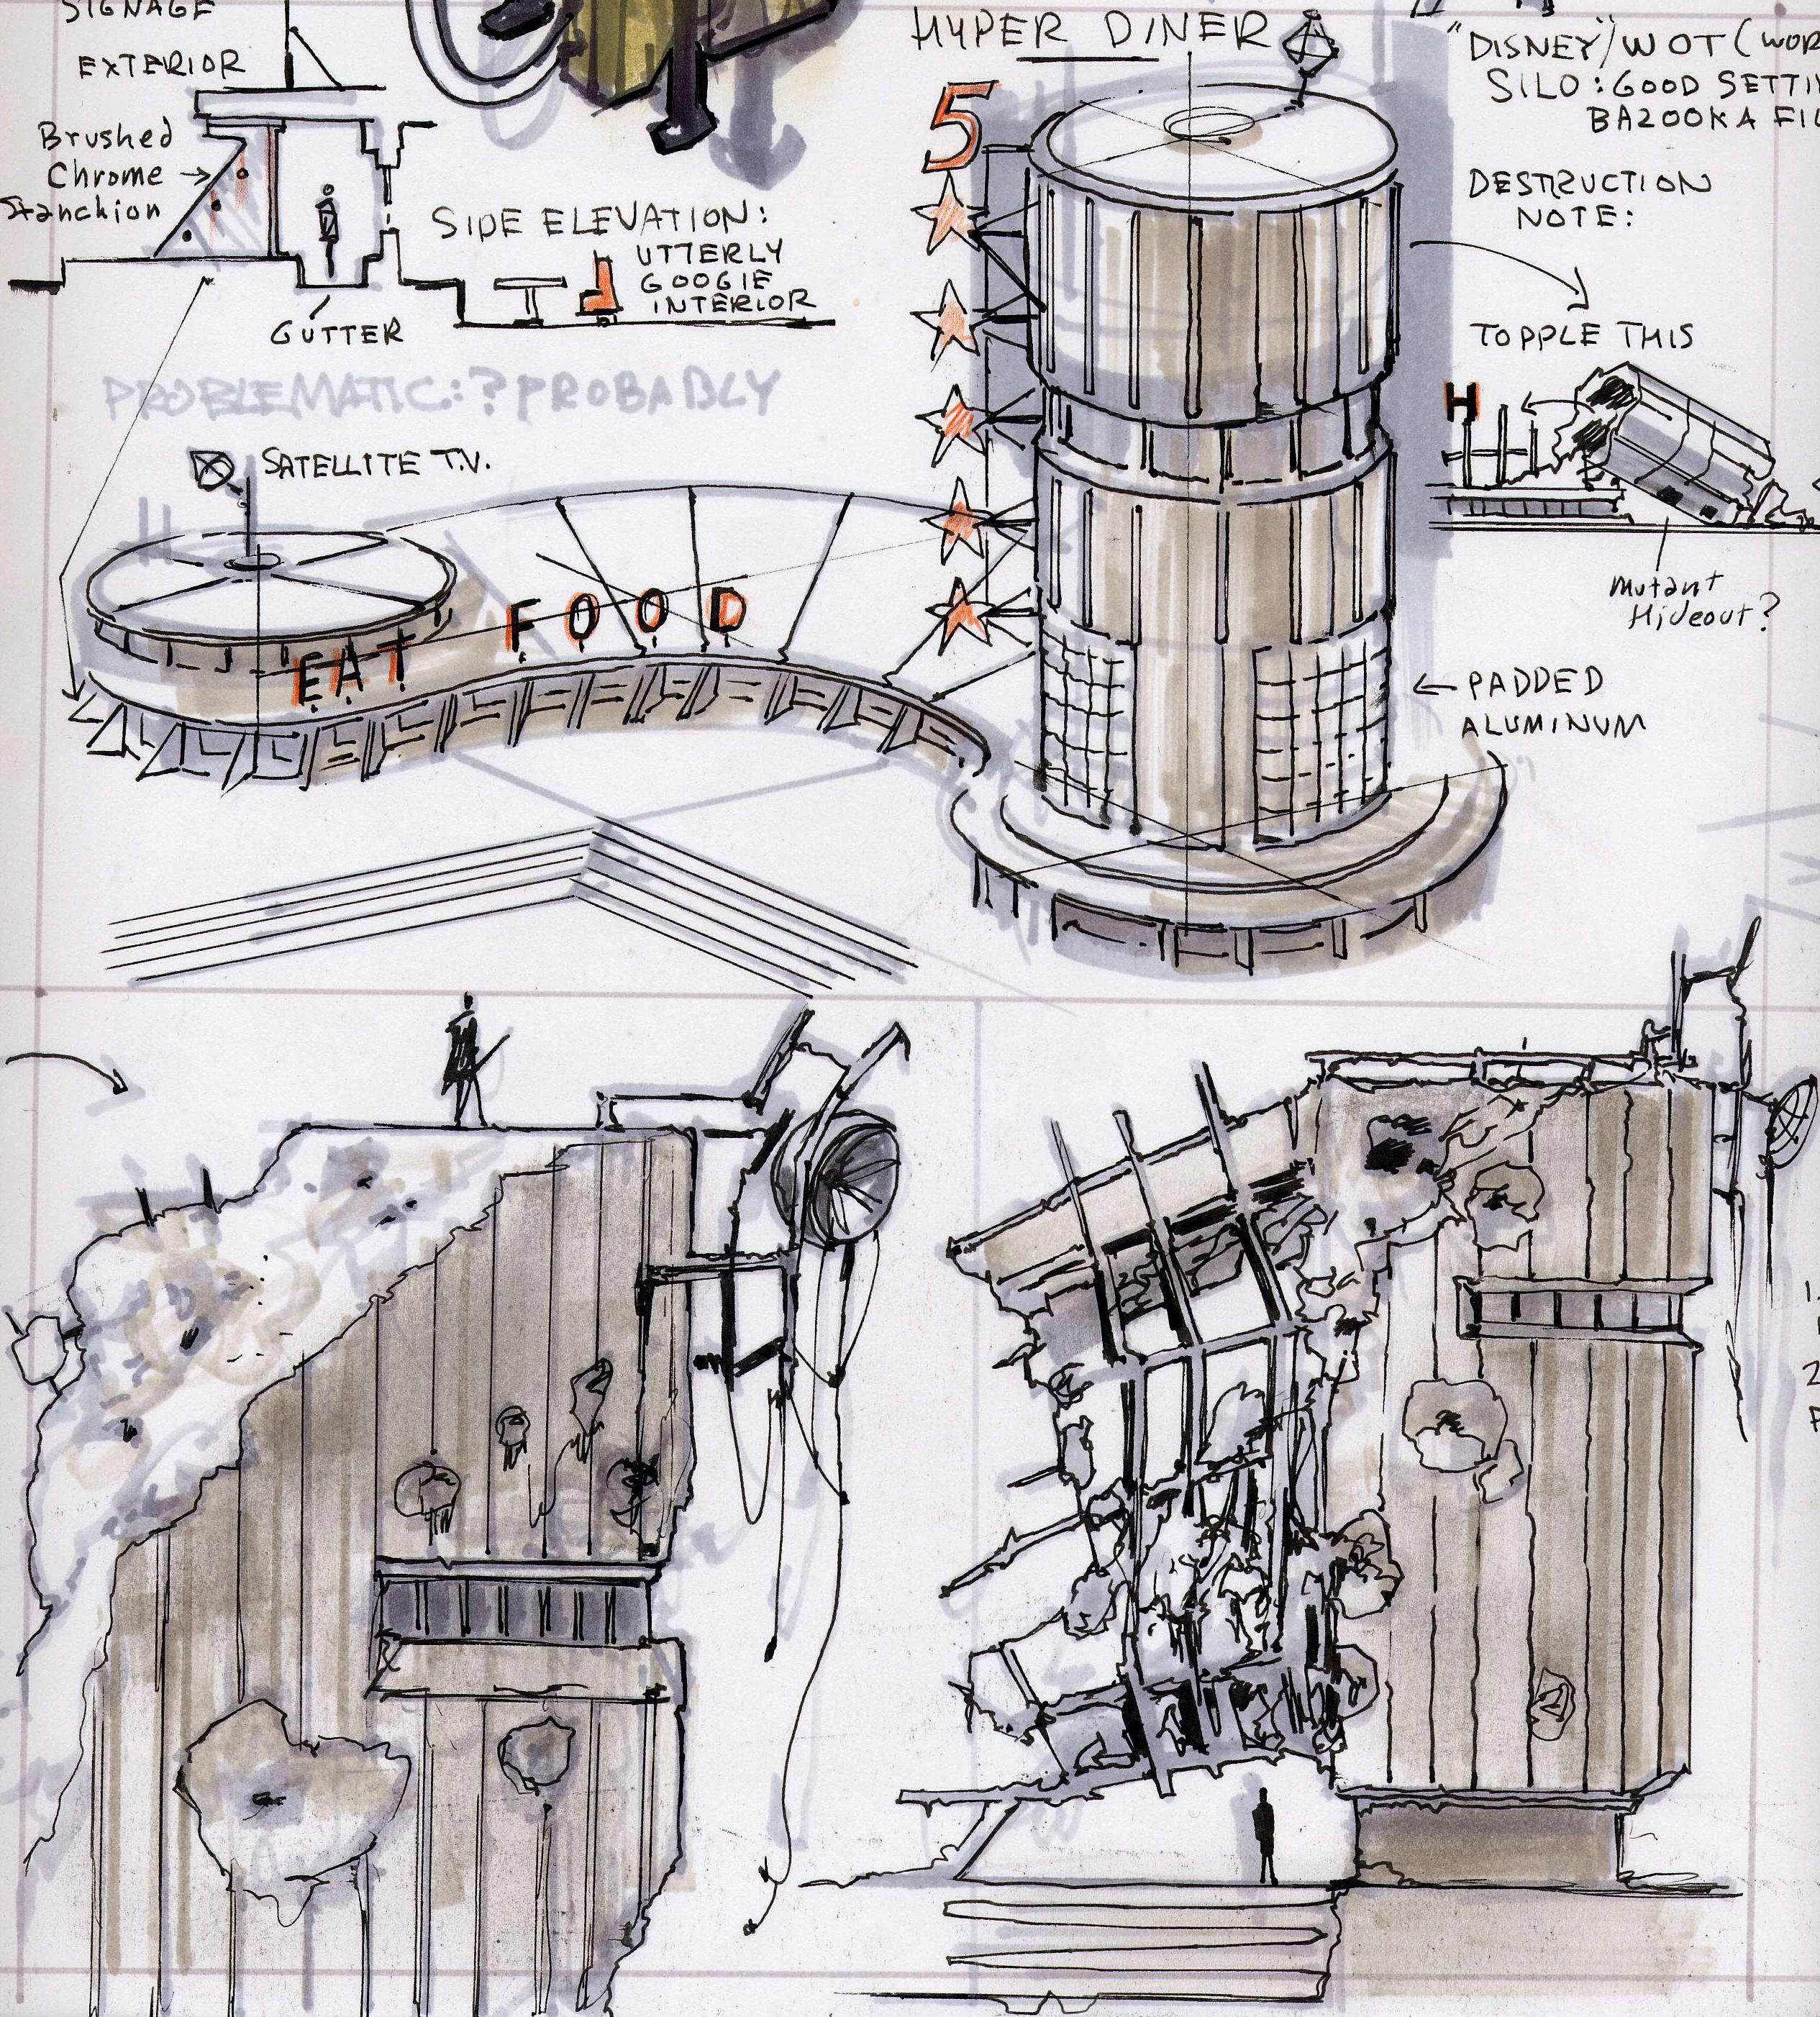 SIGNAGE
EXTERIOR
Brushed
Chrome
Stanchion
GUTTER
SIDE ELEVATION:
UTTERLY
GOOGIE
INTERIOR
PROBLEMATIC:? PROBABLY
SATELLITE T.V.
EAT FOOD
HYPER DINER
5
"DISNEY"/WOT (WOR
SILO: GOOD SETTI
BAZOOKA FI
DESTRUCTION
NOTE:
TOPPLE THIS
H
Mutant
Hideout?
PADDED
ALUMINUM
1.
2